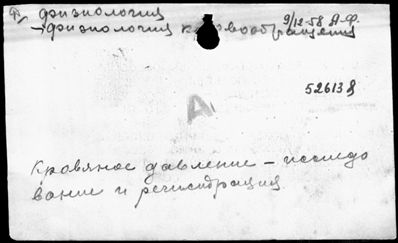 физиология
9/12-58 А-Ф.
физиология кровообращения
526138
А
Кровяное давление – исследо
вание и регистрация